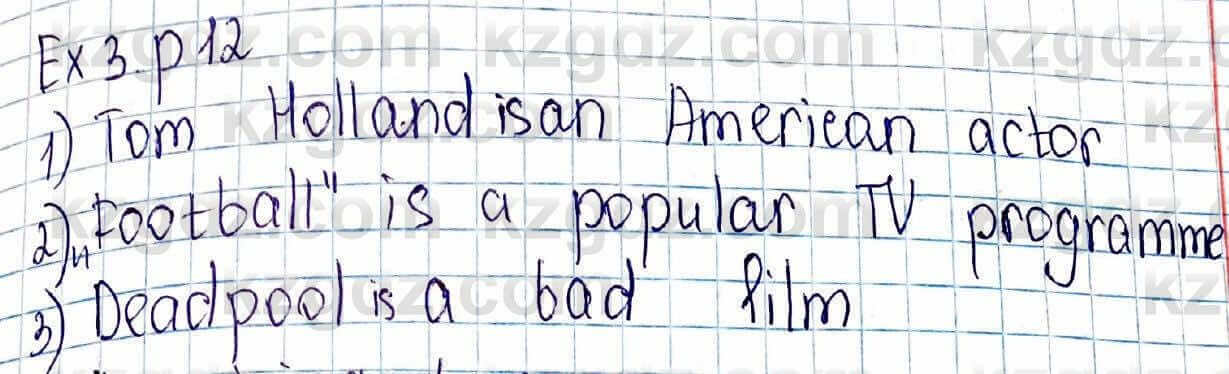 kzgdz.com kzgdz.com kzgdz.com
Ex 3. p 12
1) Tom Holland is an American actor
2) „Football" is a popular TV programme
3) Deadpool is a bad film